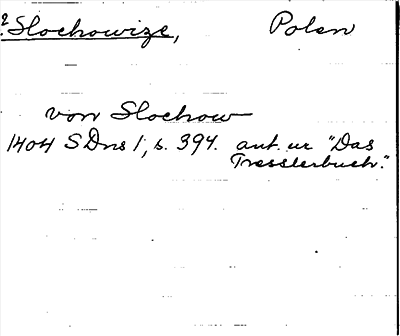 ? Slochowize, Polen
von Slochow
1404 SDns 1, s. 394. ant. ur "Das
Tresslerbuch."